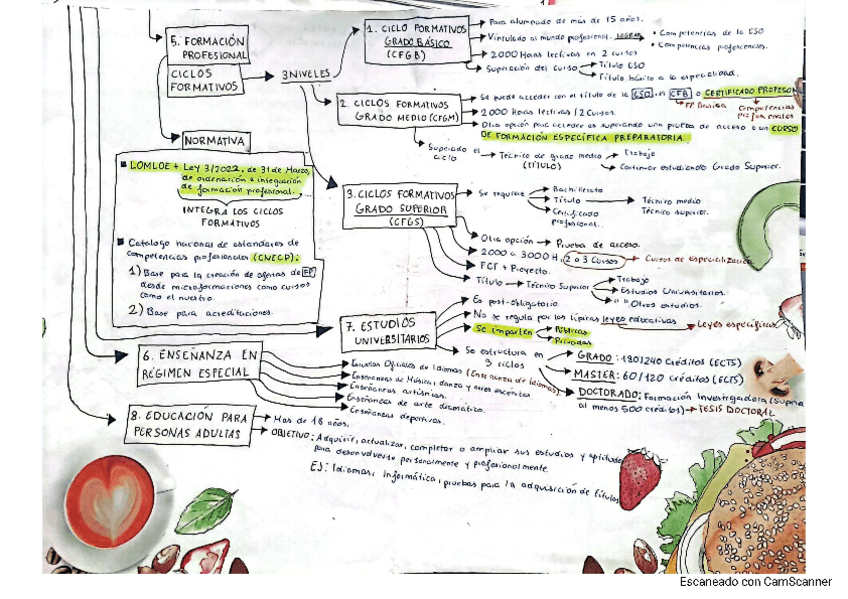 5. FORMACIÓN
PROFESIONAL
CICLOS
FORMATIVOS
3 NIVELES
1. CICLO FORMATIVOS
GRADO BÁSICO
(CFGB)
Para alumnado de más de 15 años.
Vinculado al mundo profesional.
• Competencias de la ESO
• Competencias profesionales.
2000 Horas lectivas en 2 cursos
Superación del curso
Título ESO
Título básico a la especialidad.
2. CICLOS FORMATIVOS
GRADO MEDIO (CFGM)
Se puede acceder con el título de la ESO, el CFB o CERTIFICADO PROFESION
FP Básica
Competencias
Profesionales
2000 Horas lectivas / 2 Cursos.
Otra opción para acceder es superando una prueba de acceso o un CURSO
DE FORMACIÓN ESPECÍFICA PREPARATORIA.
Superado el
ciclo
Técnico de grado medio
(TÍTULO)
Trabajo
Continuar estudiando Grado Superior.
NORMATIVA
LOMLOE + Ley 3/2022, de 31 de Marzo,
de ordenación e integración
de formación profesional.
INTEGRA LOS CICLOS
FORMATIVOS
Catálogo nacional de estándares de
competencias profesionales (CNECP):
1) Base para la creación de ofertas de FP
desde microformaciones como cursos
como el nuestro.
2) Base para acreditaciones.
3. CICLOS FORMATIVOS
GRADO SUPERIOR
(CFGS)
Se requiere
Bachillerato
Título
Técnico medio
Técnico superior.
Certificado
profesional.
Otra opción
Prueba de acceso.
2000 a 3000 H.
2 o 3 Cursos
Cursos de especialización
FCT + Proyecto.
Título
Técnico Superior
Trabajo
Estudios Universitarios.
Otros estudios.
7. ESTUDIOS
UNIVERSITARIOS
Es post-obligatorio.
No se regula por las típicas leyes educativas
Leyes específicas
Se imparten
Públicas
Privadas
Se estructura en
3 ciclos
GRADO: 180/240 Créditos (ECTS)
MASTER: 60/120 Créditos (ECTS)
DOCTORADO: Formación Investigadora (Supera
al menos 500 créditos) → TESIS DOCTORAL
6. ENSEÑANZA EN
RÉGIMEN ESPECIAL
Escuelas Oficiales de Idiomas (Enseñanza de Idiomas)
Enseñanzas de Música, danza y artes escénicas.
Enseñanzas artísticas.
Enseñanzas de arte dramático.
Enseñanzas deportivas.
8. EDUCACIÓN PARA
PERSONAS ADULTAS
Mas de 18 años.
OBJETIVO: Adquirir, actualizar, completar o ampliar sus estudios y aptitudes
para desenvolverse personalmente y profesionalmente.
EJ: Idiomas, informática, pruebas para la adquisición de títulos
Escaneado con CamScanner